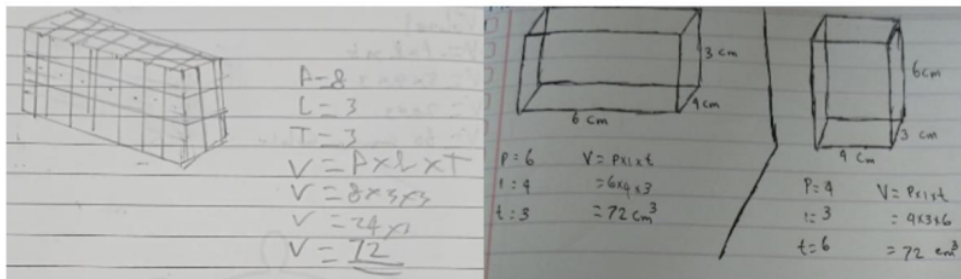 P=8
L=3
T=3
V=PxLxT
V=8x3x3
V=24x3
V=72
3 cm
4 cm
6 cm
P=6
l:4
t:3
V=Pxlxt
=6x4x3
=72cm³
6cm
3 cm
4 cm
P=4
l:3
t=6
V=Pxlxt
=4x3x6
=72 cm³